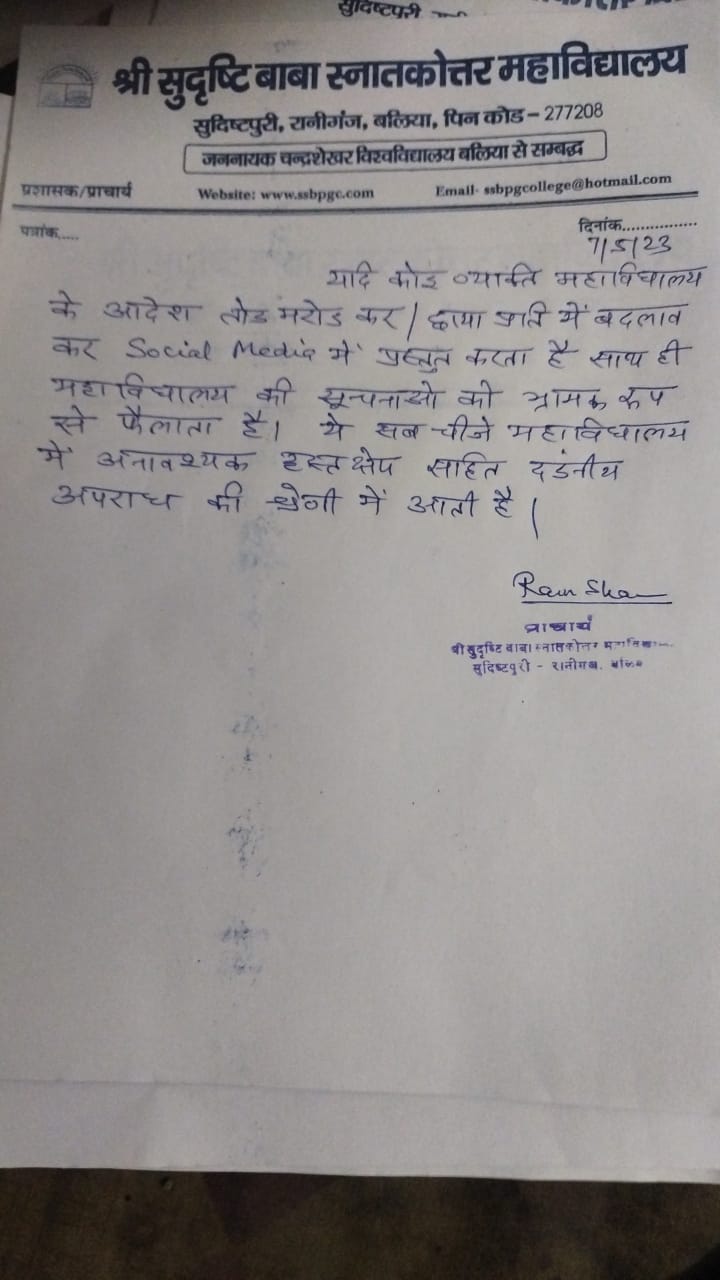 सुदिष्टपुरी
श्री सुदृष्टि बाबा स्नातकोत्तर महाविद्यालय
सुदिष्टपुरी, रानीगंज, बलिया, पिन कोड – 277208
जननायक चन्द्रशेखर विश्वविद्यालय बलिया से सम्बद्ध
प्रशासक/प्राचार्य Website: www.ssbpgc.com Email- ssbpgcollege@hotmail.com
पत्रांक..... दिनांक................
7/5/23
यदि कोइ व्याक्ति महाविद्यालय
के आदेश तोड मरोड कर / छाया प्रति में बदलाव
कर Social Media में प्रस्तुत करता है साथ ही
महाविद्यालय की सूचनाओ को भ्रामक रूप
से फैलाता है। ये सब चीजे महाविद्यालय
में अनावश्यक हस्तक्षेप सहित दडंनीय
अपराध की श्रेणी में आती है।
प्राचार्य
श्री सुदृष्टि बाबा स्नातकोत्तर
सुदिष्टपुरी - रानीगंज, बलिया